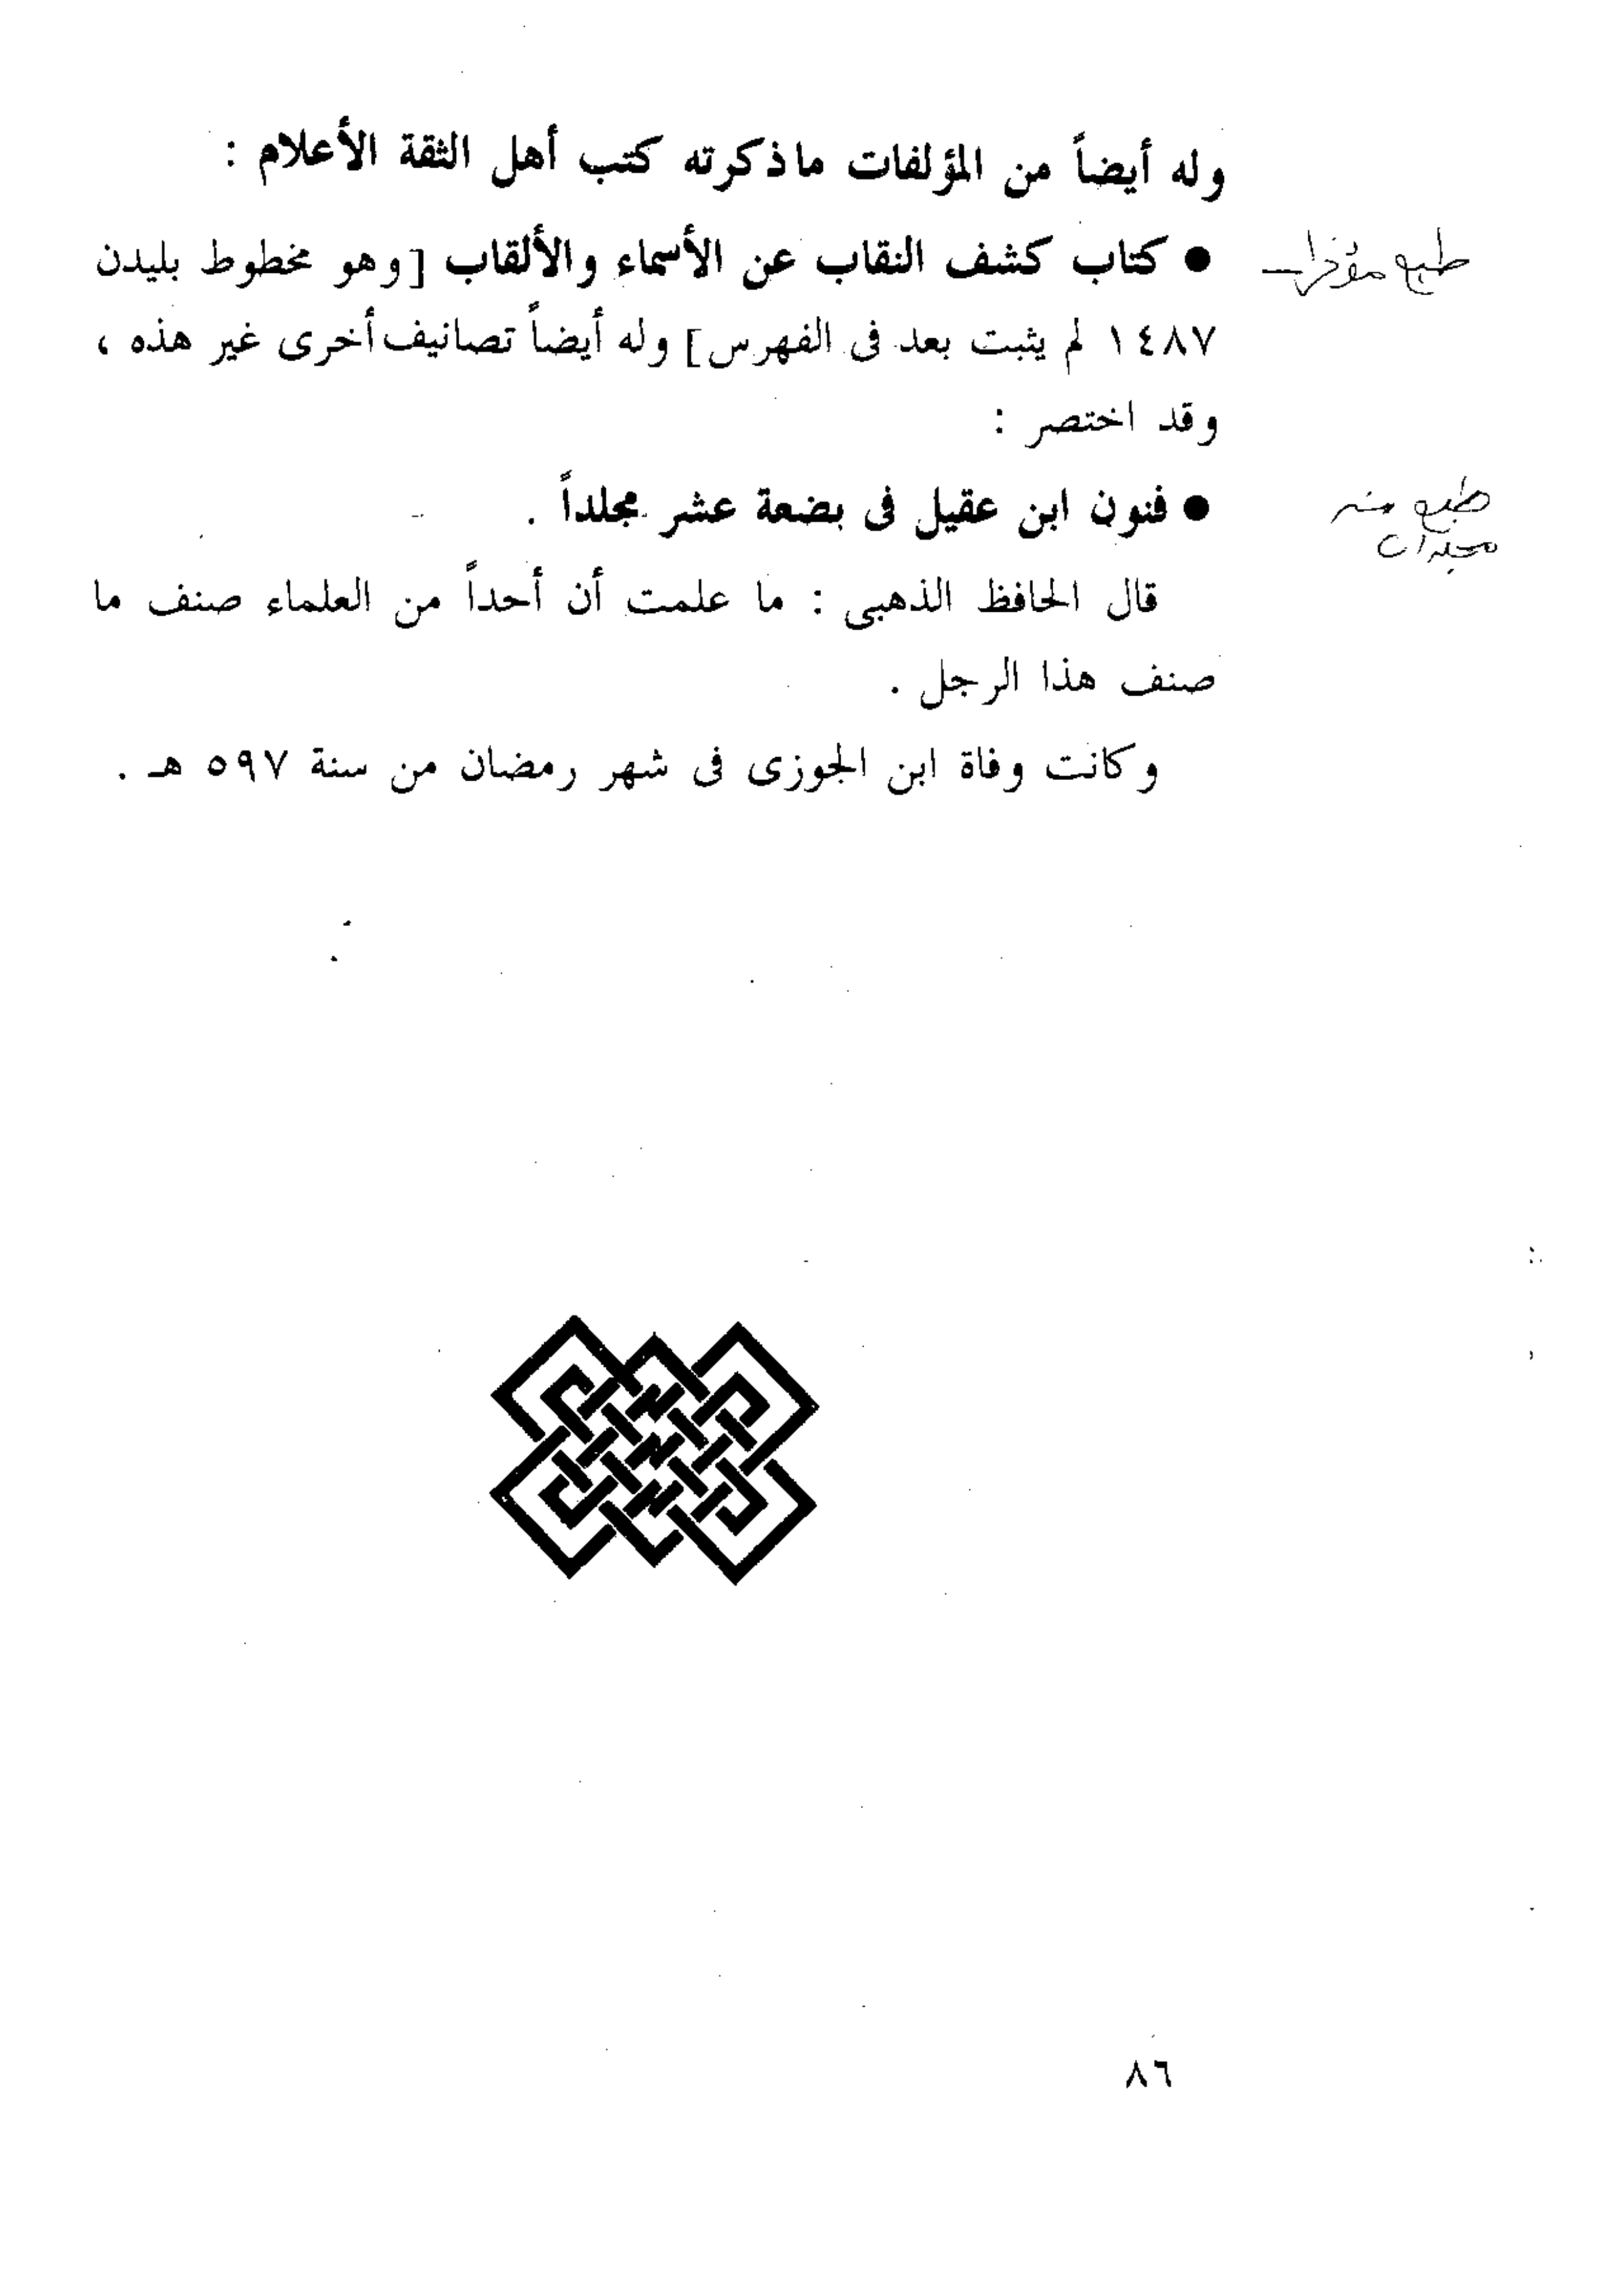 وله أيضاً من المؤلفات ماذكرته كتب أهل الثقة الأعلام :
● كتاب كشف النقاب عن الأسماء والألقاب [وهو مخطوط بليدن
طبع مؤخرا
١٤٨٧ لم يثبت بعد فى الفهرس] وله أيضاً تصانيف أخرى غير هذه ،
وقد اختصر :
● فنون ابن عقيل فى بضعة عشر مجلداً .
طبع منه
مجلدات
قال الحافظ الذهبى : ما علمت أن أحداً من العلماء صنف ما
صنف هذا الرجل .
وكانت وفاة ابن الجوزى فى شهر رمضان من سنة ٥٩٧ هـ .
٨٦